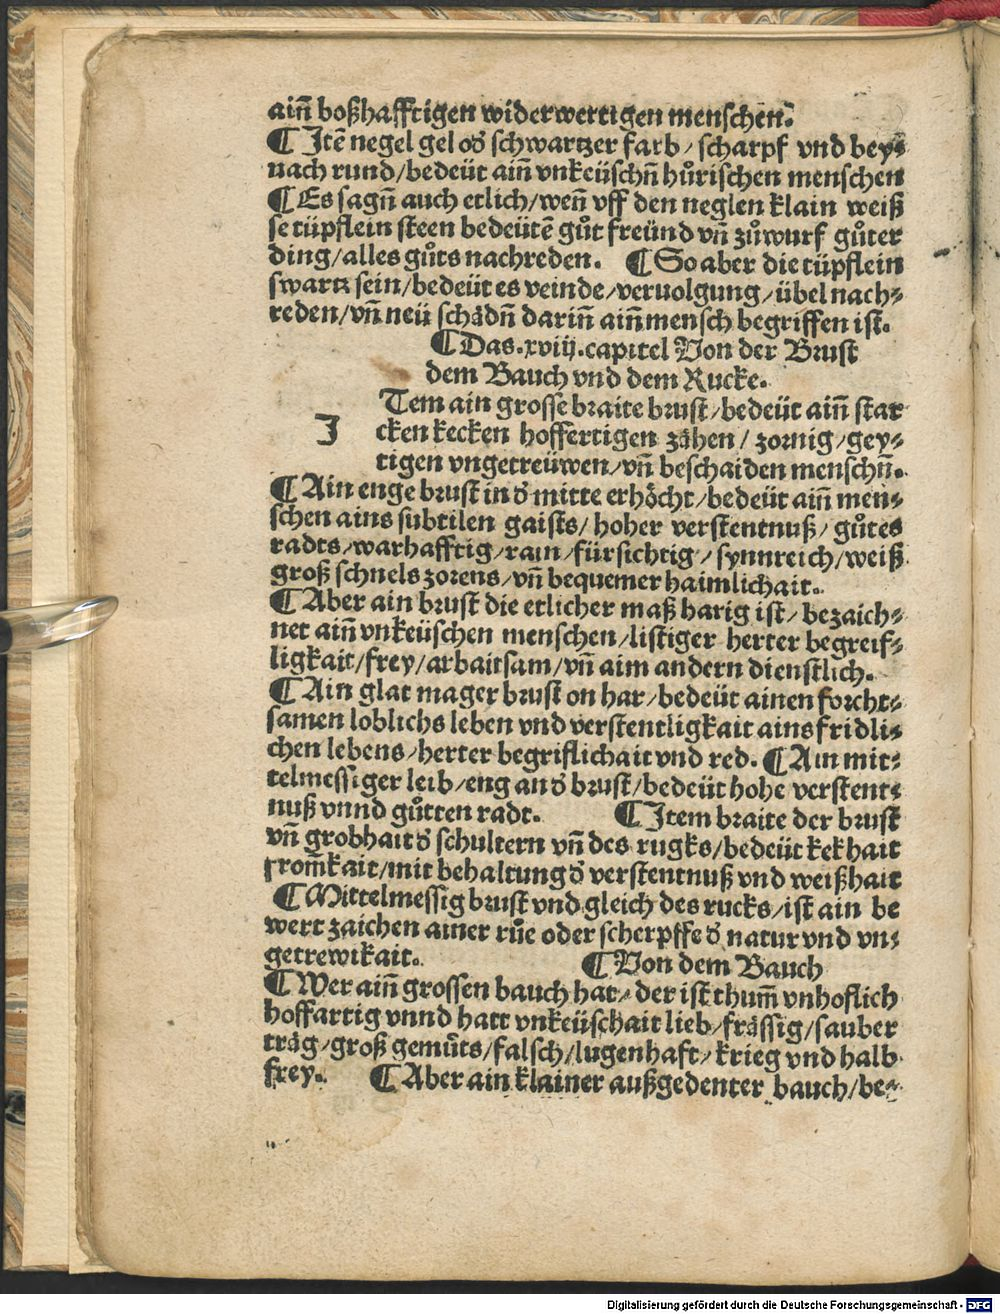 ain̄ boßhafftigen widerwertigen menschen.
¶ Itē negel gel oď schwartzer farb / scharpf vnd bey⸗
nach rund / bedeüt ain̄ vnkeüschn̄ hůrischen menschen
¶ Es sagn̄ auch etlich / wen̄ vff den neglen klain weiß
se tüpflein steen bedeütē gůt freünd vn̄ zůwurf gůter
ding / alles gůts nachreden. ¶ So aber die tüpflein
swartz sein / bedeüt es veinde / veruolgung / übel nach⸗
reden / vn̄ neü schädn̄ darin̄ ain̄ mensch begriffen ist.
¶ Das .xviij. capitel Von der Brust
dem Bauch vnd dem Rucke.
I Tem ain grosse braite brust / bedeüt ain̄ star
cken kecken hoffertigen zähen / zornig / gey⸗
tigen vngetreüwen / vn̄ beschaiden menschn̄.
¶ Ain enge brust in ď mitte erhöcht / bedeüt ain̄ men⸗
schen ains subtilen gaists / hoher verstentnuß / gůtes
radts / warhafftig / rain / fürsichtig / synnreich / weiß
groß schnels zorens / vn̄ bequemer haimlichait.
¶ Aber ain brust die etlicher maß harig ist / bezaich⸗
net ain̄ vnkeüschen menschen / listiger herter begreif⸗
ligkait / frey / arbaitsam / vn̄ aim andern dienstlich.
¶ Ain glat mager brust on har / bedeüt ainen forcht⸗
samen loblichs leben vnd verstentligkait ains fridli⸗
chen lebens / herter begriflichait vnd red. ¶ Ain mit⸗
telmessiger leib / eng an ď brust / bedeüt hohe verstent⸗
nuß vnnd gůtten radt. ¶ Item braite der brust
vn̄ grobhait ď schultern vn̄ des rugks / bedeüt kekhait
from̄kait / mit behaltung ď verstentnuß vnd weißhait
¶ Mittelmessig brust vnd gleich des rucks / ist ain be
wert zaichen ainer růe oder scherpffe ď natur vnd vn⸗
getrewikait. ¶ Von dem Bauch
¶ Wer ain̄ grossen bauch hat / der ist thum̄ vnhoflich
hoffartig vnnd hatt vnkeüschait lieb / frässig / sauber
träg / groß gemůts / falsch / lugenhaft / krieg vnd halb
frey. ¶ Aber ain klainer außgedenter bauch / be⸗
Digitalisierung gefördert durch die Deutsche Forschungsgemeinschaft - DFG